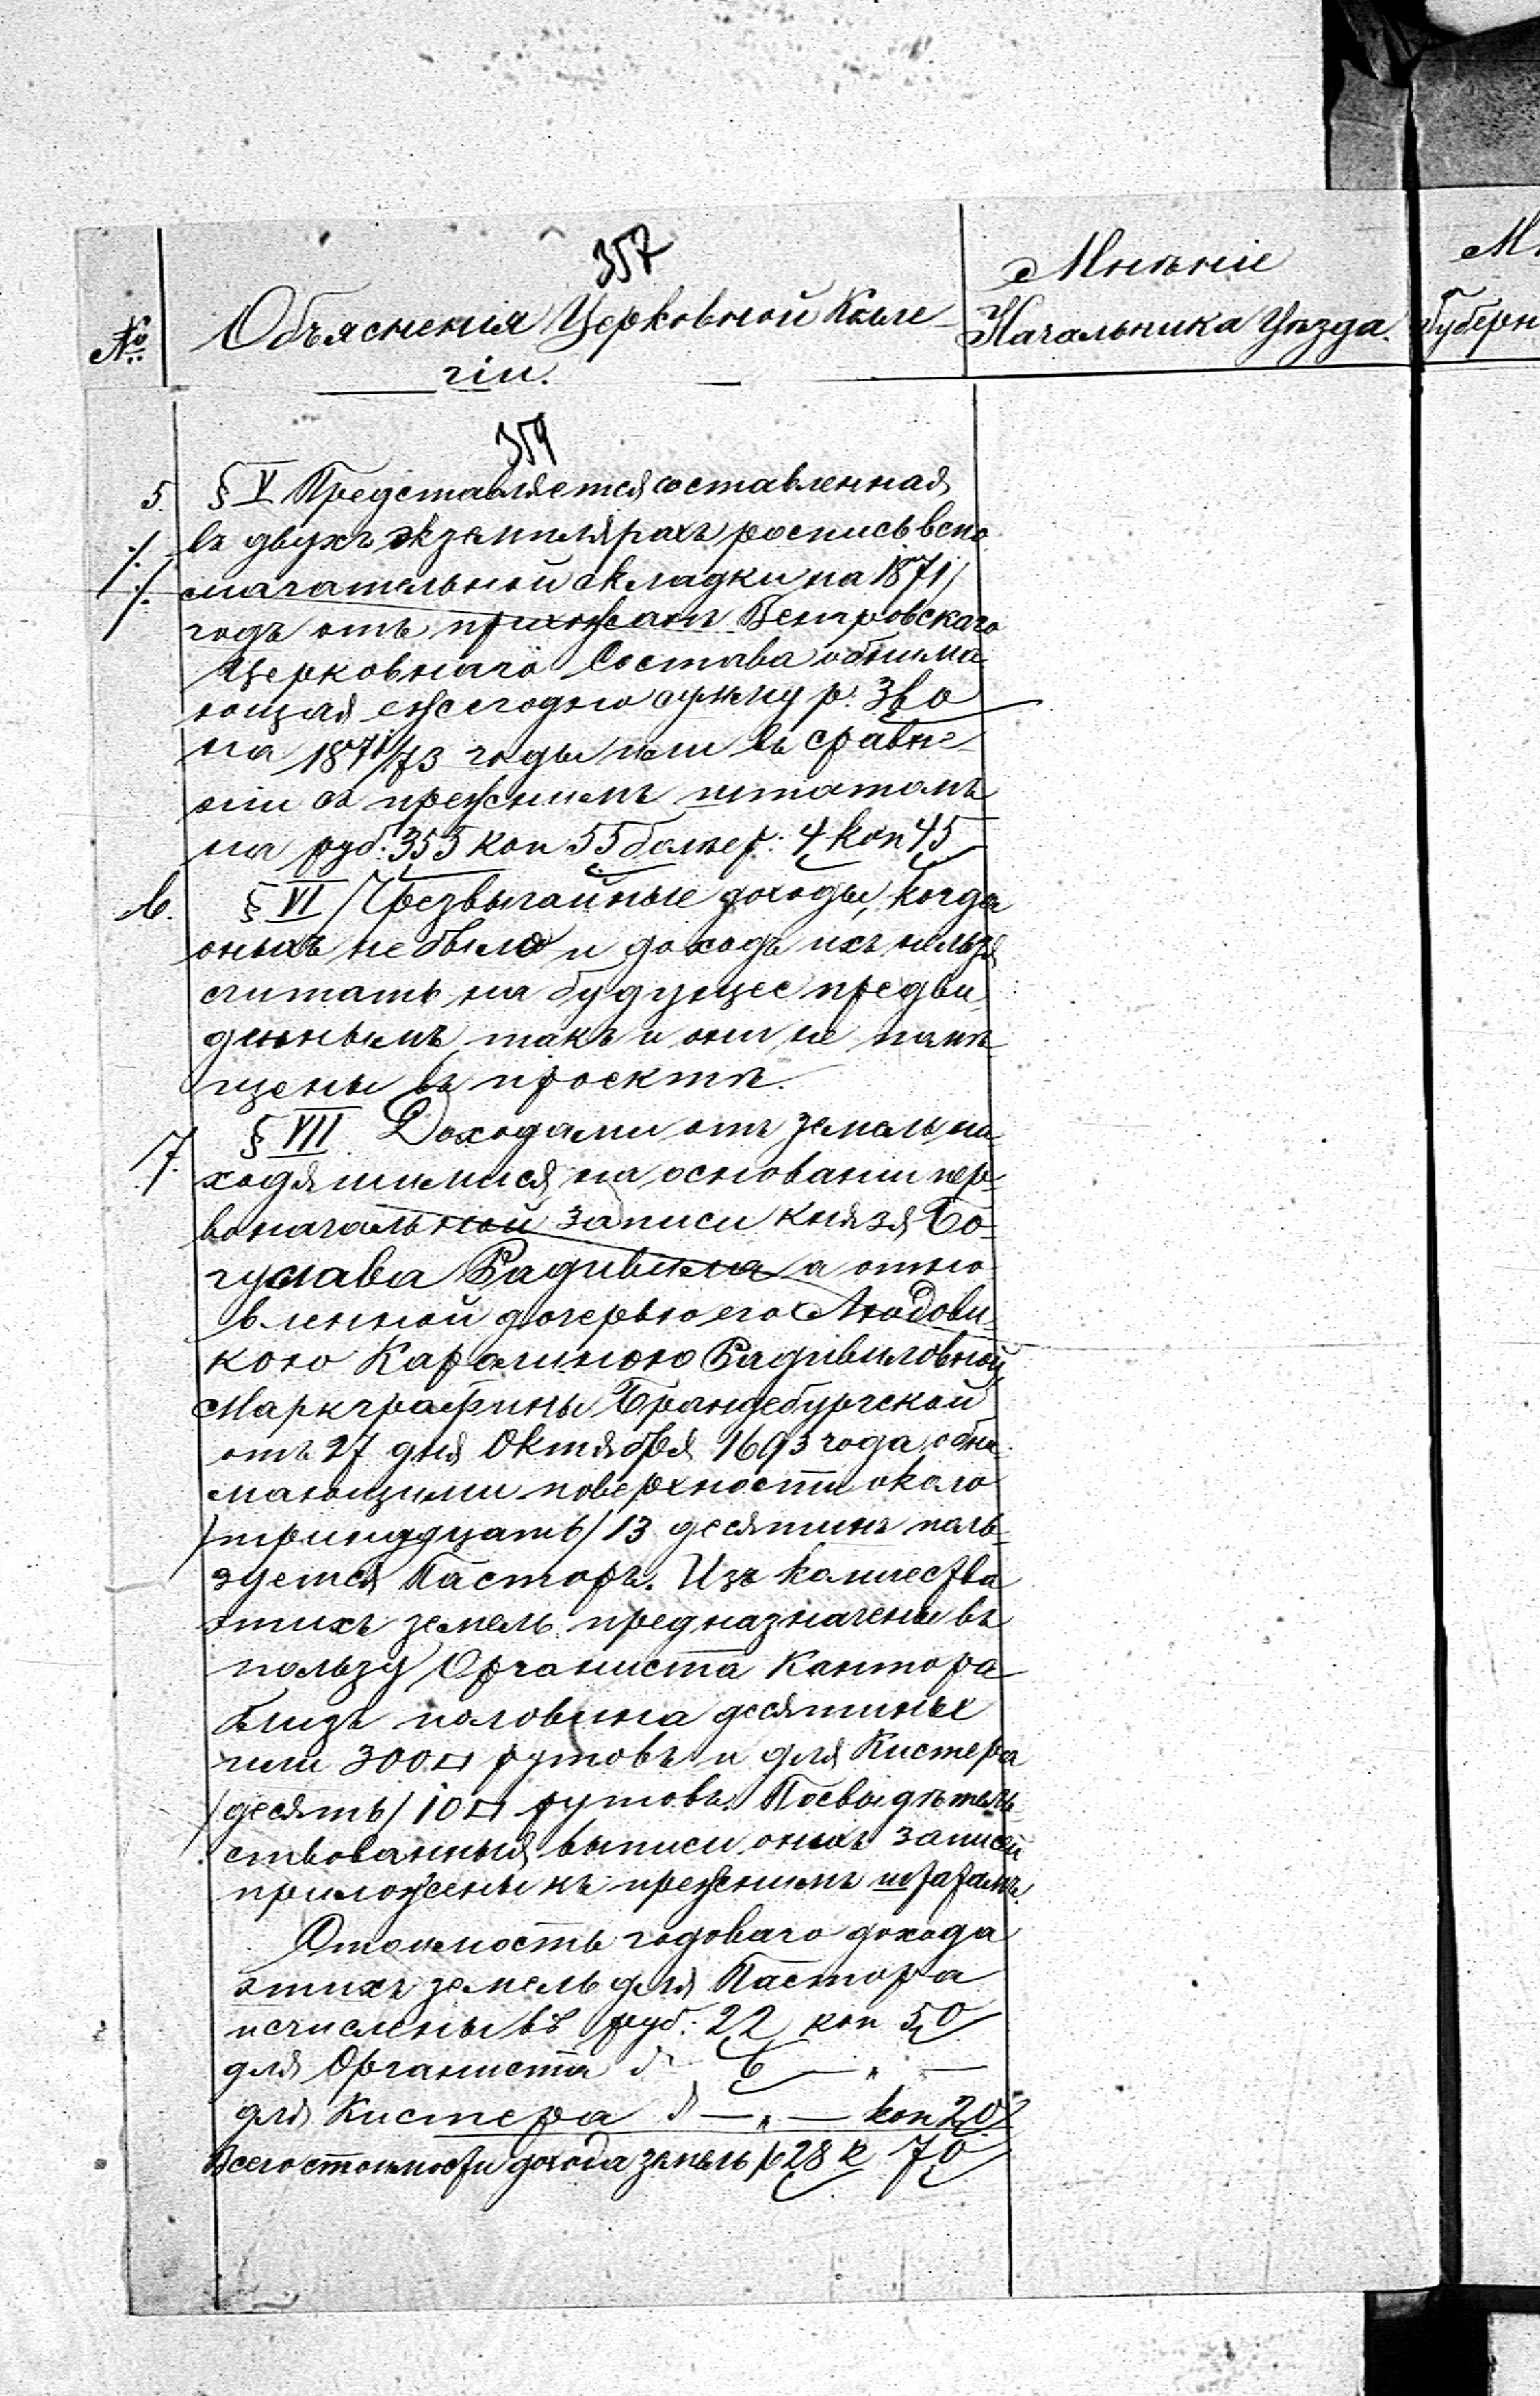 357
№ Объясненія Церковной Колле-
гіи.
Мнѣніе
Начальника Уѣзда.
М
Губерн
359
5. § V Представляется составленная
въ двухъ экземплярахъ роспись вспо
магательной складки на 1871/
годъ отъ прихожанъ Венгровскаго
Церковнаго Состава обнима
ющая ежегодно сумму р. 360
на 1871/73 годы или въ сравне
ніи съ прежнимъ штатомъ
на руб. 353 коп 55 более р: 4 коп 45
6. § VI Чрезвычайные доходы, когда
оныхъ не было и доходъ ихъ нельзя
считать на будущее предви
деннымъ такъ и они не помѣ
щены въ проектѣ.
7. § VII Доходами отъ земель на
ходящимися на основаніи пер-
воначальной записи князя Бо-
гуслава Радивила а отно
вленной дочерью его Людови
кою Каролиною Радивиловной
Маркграфины Бранденбургской
отъ 27 дня Октября 1693 года обни
мающими поверхности около
/тринадцать/ 13 десятинъ поль-
зуется Пасторъ. Изъ количества
этихъ земель предназначены въ
пользу Органиста Кантора
близъ половина десятины
или 300 □ рутовъ и для Кистера
/десять/ 10 □ рутовъ. Посвидѣтель
ствованныя выписи оныхъ записей
приложены къ прежнимъ штатамъ.
Стоимость годоваго дохода
этихъ земель для Пастора
исчислены въ руб: 22 коп 50
для Органиста д 6 — „ —
для Кистера д — „ — коп 20
Всего стоимости дохода земель р 28 к 70